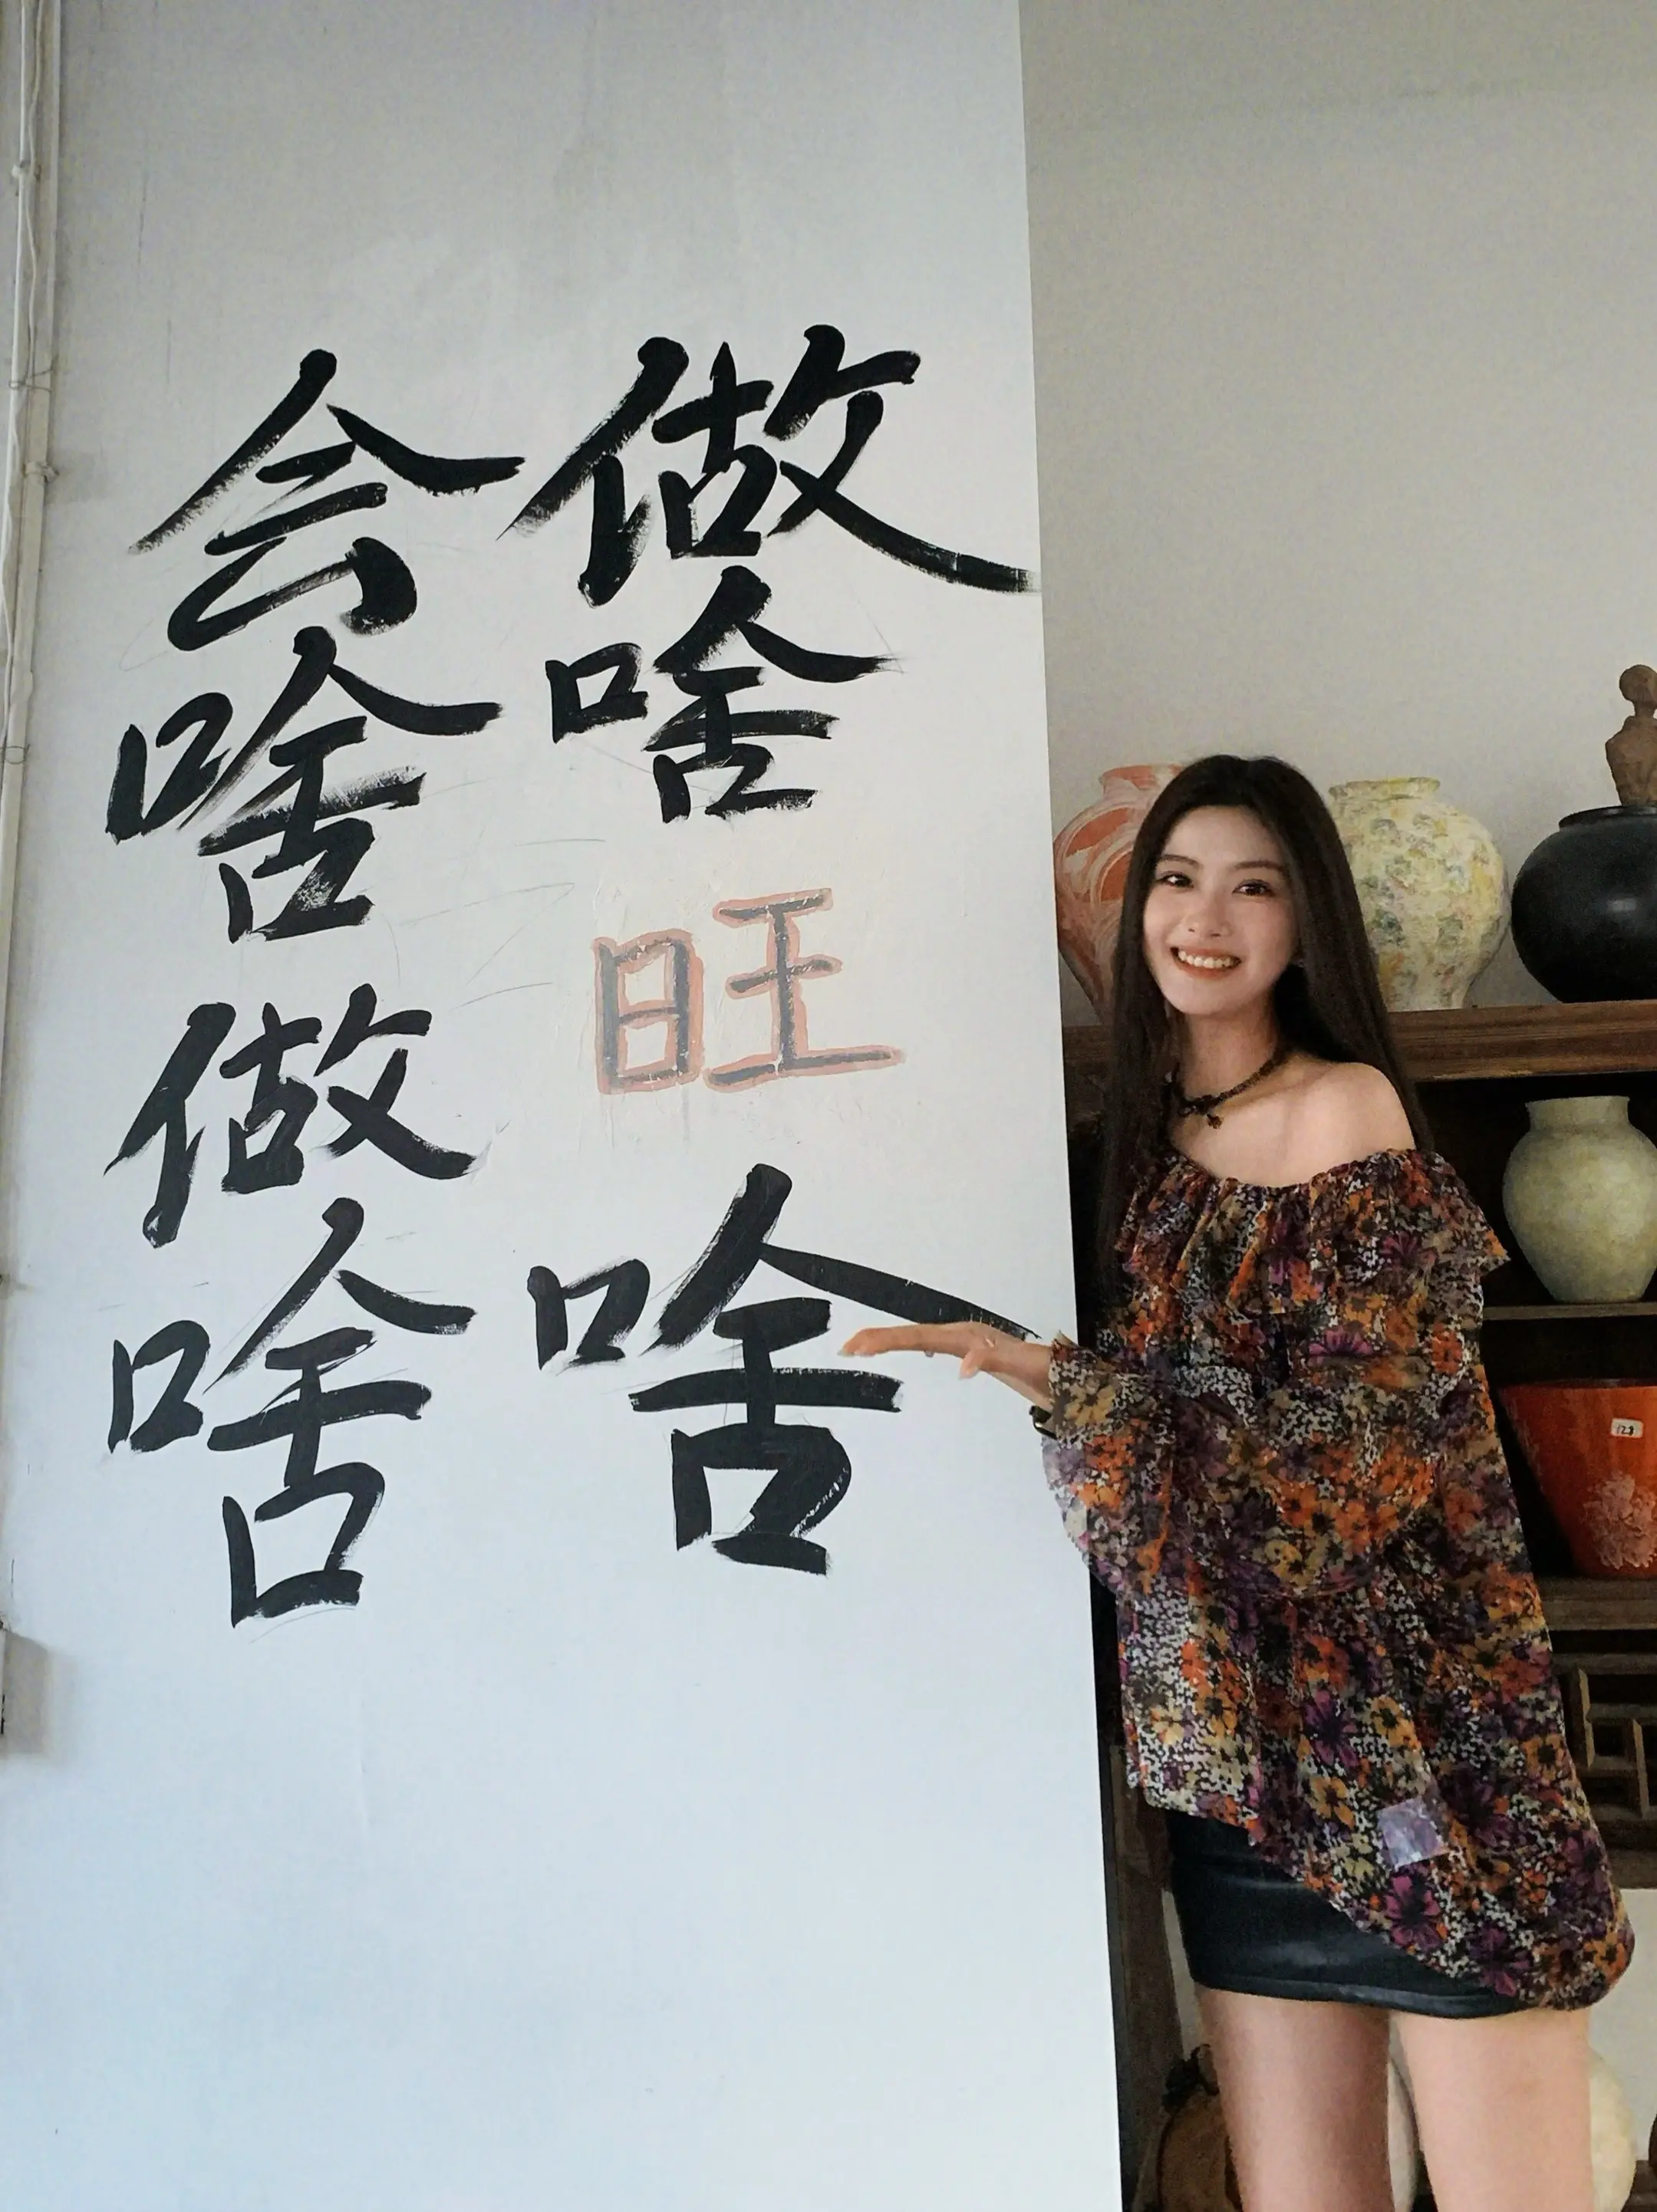 会啥做啥
做啥旺啥
128